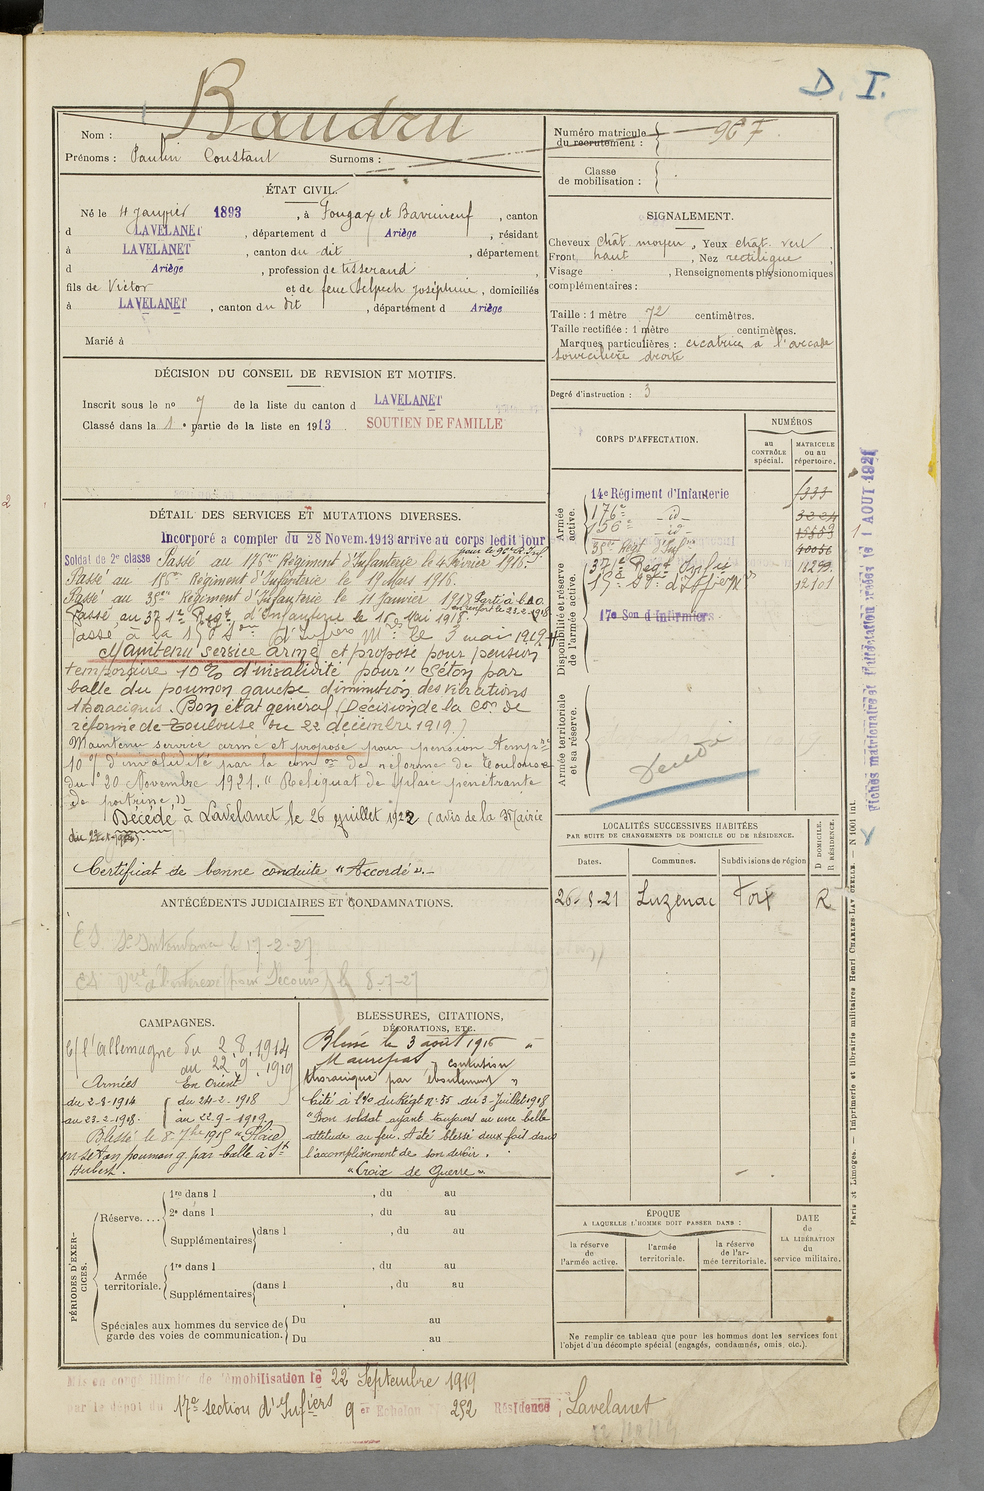 D. I.
Baudru
Nom :
Prénoms : Paulin Constant Surnoms :
Numéro matricule du recrutement : 967
Classe de mobilisation :
ÉTAT CIVIL.
Né le 4 janvier 1893, à Fougax et Barrineuf, canton
d LAVELANET, département d Ariège, résidant
à LAVELANET, canton du dit, département
d Ariège, profession de tisserand
fils de Victor et de feue Delpech Joséphine, domiciliés
à LAVELANET, canton du dit, département d Ariège
Marié à
SIGNALEMENT.
Cheveux chât moyen, Yeux chât. vert
Front haut, Nez rectiligne
Visage , Renseignements physionomiques
complémentaires :
Taille : 1 mètre 72 centimètres.
Taille rectifiée : 1 mètre centimètres.
Marques particulières : cicatrice à l'arcade
sourcilière droite
Degré d'instruction : 3
DÉCISION DU CONSEIL DE REVISION ET MOTIFS.
Inscrit sous le no 7 de la liste du canton d LAVELANET
Classé dans la 1e partie de la liste en 1913. SOUTIEN DE FAMILLE
DÉTAIL DES SERVICES ET MUTATIONS DIVERSES.
Incorporé a compter du 28 Novem. 1913 arrivé au corps ledit jour
Soldat de 2e classe Passé au 176ème Régiment d'Infanterie le 4 février 1916.
Passé au 156ème Régiment d'Infanterie le 19 Mars 1916.
Passé au 35ème Régiment d'Infanterie le 11 Janvier 1918. Parti à l'A.O.
en renfort le 23.2.1918
Passé au 371e Régt d'Infanterie le 16 Mai 1918.
Passé à la 15e Son d'Infiers Mres le 3 mai 1919
Maintenu service armé et proposé pour pension
temporaire 10% d'invalidité pour "Séton par
balle du poumon gauche diminution des vibrations
thoraciques. Bon état général (Décision de la Con de
réforme de Toulouse du 22 décembre 1919.)
Maintenu service armé et proposé pour pension tempre
10% d'invalidité par la com on de réforme de Toulouse
du 20 Novembre 1921. "Reliquat de plaie pénétrante
de poitrine"
Décédé à Lavelanet le 26 juillet 1922 (avis de la Mairie
Certificat de bonne conduite "Accordé".
CORPS D'AFFECTATION.
NUMÉROS
au CONTRÔLE spécial.
MATRICULE ou au répertoire.
Armée active.
14e Régiment d'Infanterie
176e _id_
156e _id_
35e Régt d'Infie
Disponibilité et réserve de l'armée active.
371e Régt d'Infie
15e Son d'Infiers Mres 12101
17e Son d'Infirmiers
Armée territoriale et sa réserve.
Fiches matricule et d'attestation créées le 1 AOUT 1921
LOCALITÉS SUCCESSIVES HABITÉES
PAR SUITE DE CHANGEMENTS DE DOMICILE OU DE RÉSIDENCE.
D DOMICILE. R RÉSIDENCE.
Dates. Communes. Subdivisions de région
26-8-21 Luzenac Foix R
ANTÉCÉDENTS JUDICIAIRES ET CONDAMNATIONS.
E.S. Sce Intendance le 17-2-27
ES Vve à l'intéressé (pour Secours) le 8-7-27
CAMPAGNES.
C/ l'Allemagne du 2.8.1914
au 22.9.1919
Armées En Orient
du 2-8-1914 du 24-2-1918
au 23-2-1918. au 22-9-1919
Blessé le 8-7bre 1915 "Plaie
en Séton poumon g. par balle à St
Hubert.
BLESSURES, CITATIONS,
DÉCORATIONS, ETC.
Blessé le 3 août 1916 à
Maurepas "contusion
thoracique par éboulement"
Cité à l'o/o du Régt No 55 du 3-Juillet 1918
"Bon soldat ayant toujours eu une belle
attitude au feu. A été blessé deux fois dans
l'accomplissement de son devoir.
"Croix de Guerre".
PÉRIODES D'EXERCICES.
Réserve....
1re dans l , du au
2e dans l , du au
Supplémentaires dans l , du au
Armée territoriale.
1re dans l , du au
Supplémentaires dans l , du au
Spéciales aux hommes du service de garde des voies de communication.
Du au
Du au
ÉPOQUE
A LAQUELLE L'HOMME DOIT PASSER DANS :
la réserve de l'armée active.
l'armée territoriale.
la réserve de l'armée territoriale.
DATE de LA LIBÉRATION du service militaire.
Ne remplir ce tableau que pour les hommes dont les services font
l'objet d'un décompte spécial (engagés, condamnés, omis, etc.).
Paris et Limoges. — Imprimerie et librairie militaires Henri CHARLES-LAVAUZELLE. — N 1001 int.
Mis en congé illimité de démobilisation le 22 Septembre 1919
par le dépôt du 17e section d'Infiers 9e Echelon N 252 Résidence, Lavelanet